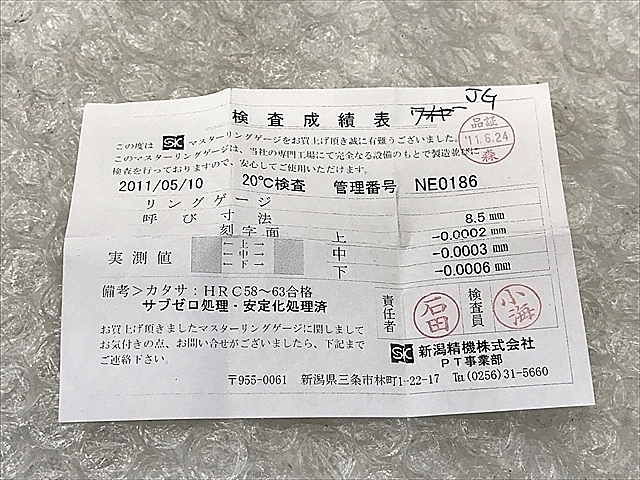 検査成績表 ワイヤー JG
この度は SK マスターリングゲージをお買上げ頂き誠に有難うございました。
このマスターリングゲージは、当社の専門工場にて完全なる設備のもとで製造並びに
検査を行っておりますので、安心してご使用いただけます。
品証
'11.6.24
森
2011/05/10 20℃検査 管理番号 NE0186
リングゲージ
呼び寸法 8.5 mm
刻字面 上 -0.0002 mm
実測値 ←上→ ←中→ ←下→ 中 -0.0003 mm
下 -0.0006 mm
備考>カタサ：HRC58～63合格
サブゼロ処理・安定化処理済
責任者 石田 検査員 小海
お買上げ頂きましたマスターリングゲージに関しまして
お気付きの点、お問い合せがございましたら、下記まで
ご連絡下さい。
SK 新潟精機株式会社
PT事業部
〒955-0061 新潟県三条市林町1-22-17 TEL(0256)31-5660